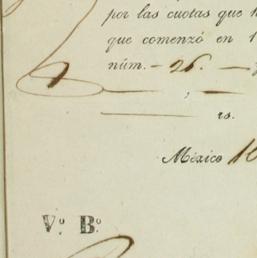 por las cuotas que
que comenzó en 1
núm. — 26. —
;
rs.
México 10
V.º B.º